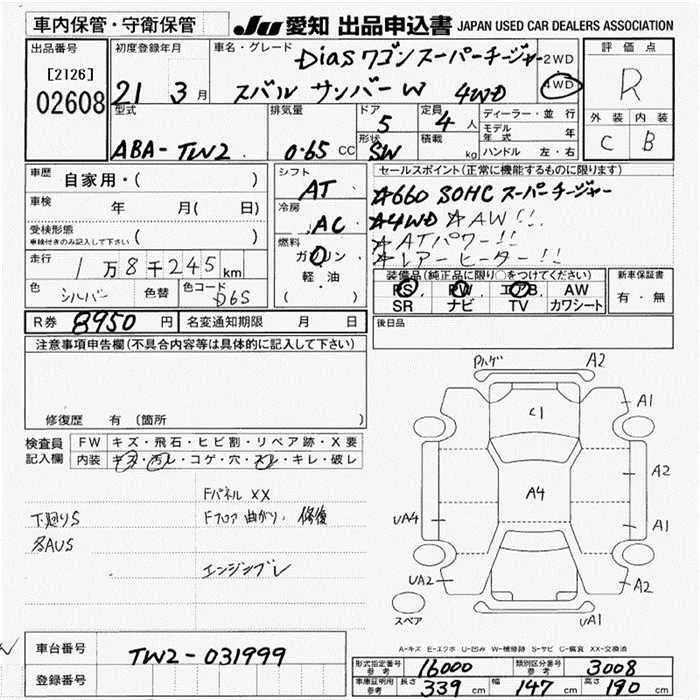 車内保管・守衛保管
JU 愛知 出品申込書 JAPAN USED CAR DEALERS ASSOCIATION
出品番号
[2126]
02608
初度登録年月
21 3月
車名・グレード
Diasワゴンスーパーチージャー
スバル サンバーW 4WD
2WD
4WD
評価点
R
外装 内装
C B
型式
ABA-TW2
排気量
0.65 CC
ドア
5
形状
SW
定員
4 人
積載
kg
ディーラー・並行
モデル年式 年
ハンドル 左・右
車歴 自家用・( )
車検 年 月( 日)
受検形態
車検付きのみ記入して下さい ( )
走行 1万8千245km
色 シルバー 色替 色コード D6S
シフト
AT
冷房
AC
燃料
ガソリン
軽・油
( )
セールスポイント(正常に機能するものに限ります)
☆660 SOHC スーパーチージャー
☆4WD ☆AW!!
☆ATパワー!!
☆レアーヒーター!!
装備品(純正品に限り○をつけてください)
PS. PW. エアB. AW
SR ナビ TV カワシート
新車保証書
有・無
R券 8950 円
名変通知期限 月 日
後日品
注意事項申告欄(不具合内容等は具体的に記入して下さい)
修復歴 有 (箇所 )
検査員記入欄
FW キズ・飛石・ヒビ割・リペア跡・X要
内装 キズ・汚レ・コゲ・穴・スレ・キレ・破レ
下廻りS
各AUS
Fパネル XX
Fフロア 曲がり. 修復
エンジンブレ
Pハゲ
A2
A1
C1
A2
A4
UA4
A1
UA2
A2
UA1
スペア
A-キズ E-エクボ U-凹み W-補修跡 S-サビ C-腐食 XX-交換済
車台番号 TW2-031999
登録番号
形式指定番号 参考 16000
類別区分番号 参考 3008
車庫証明用 参考 長さ 339 cm 幅 147 cm 高さ 190 cm